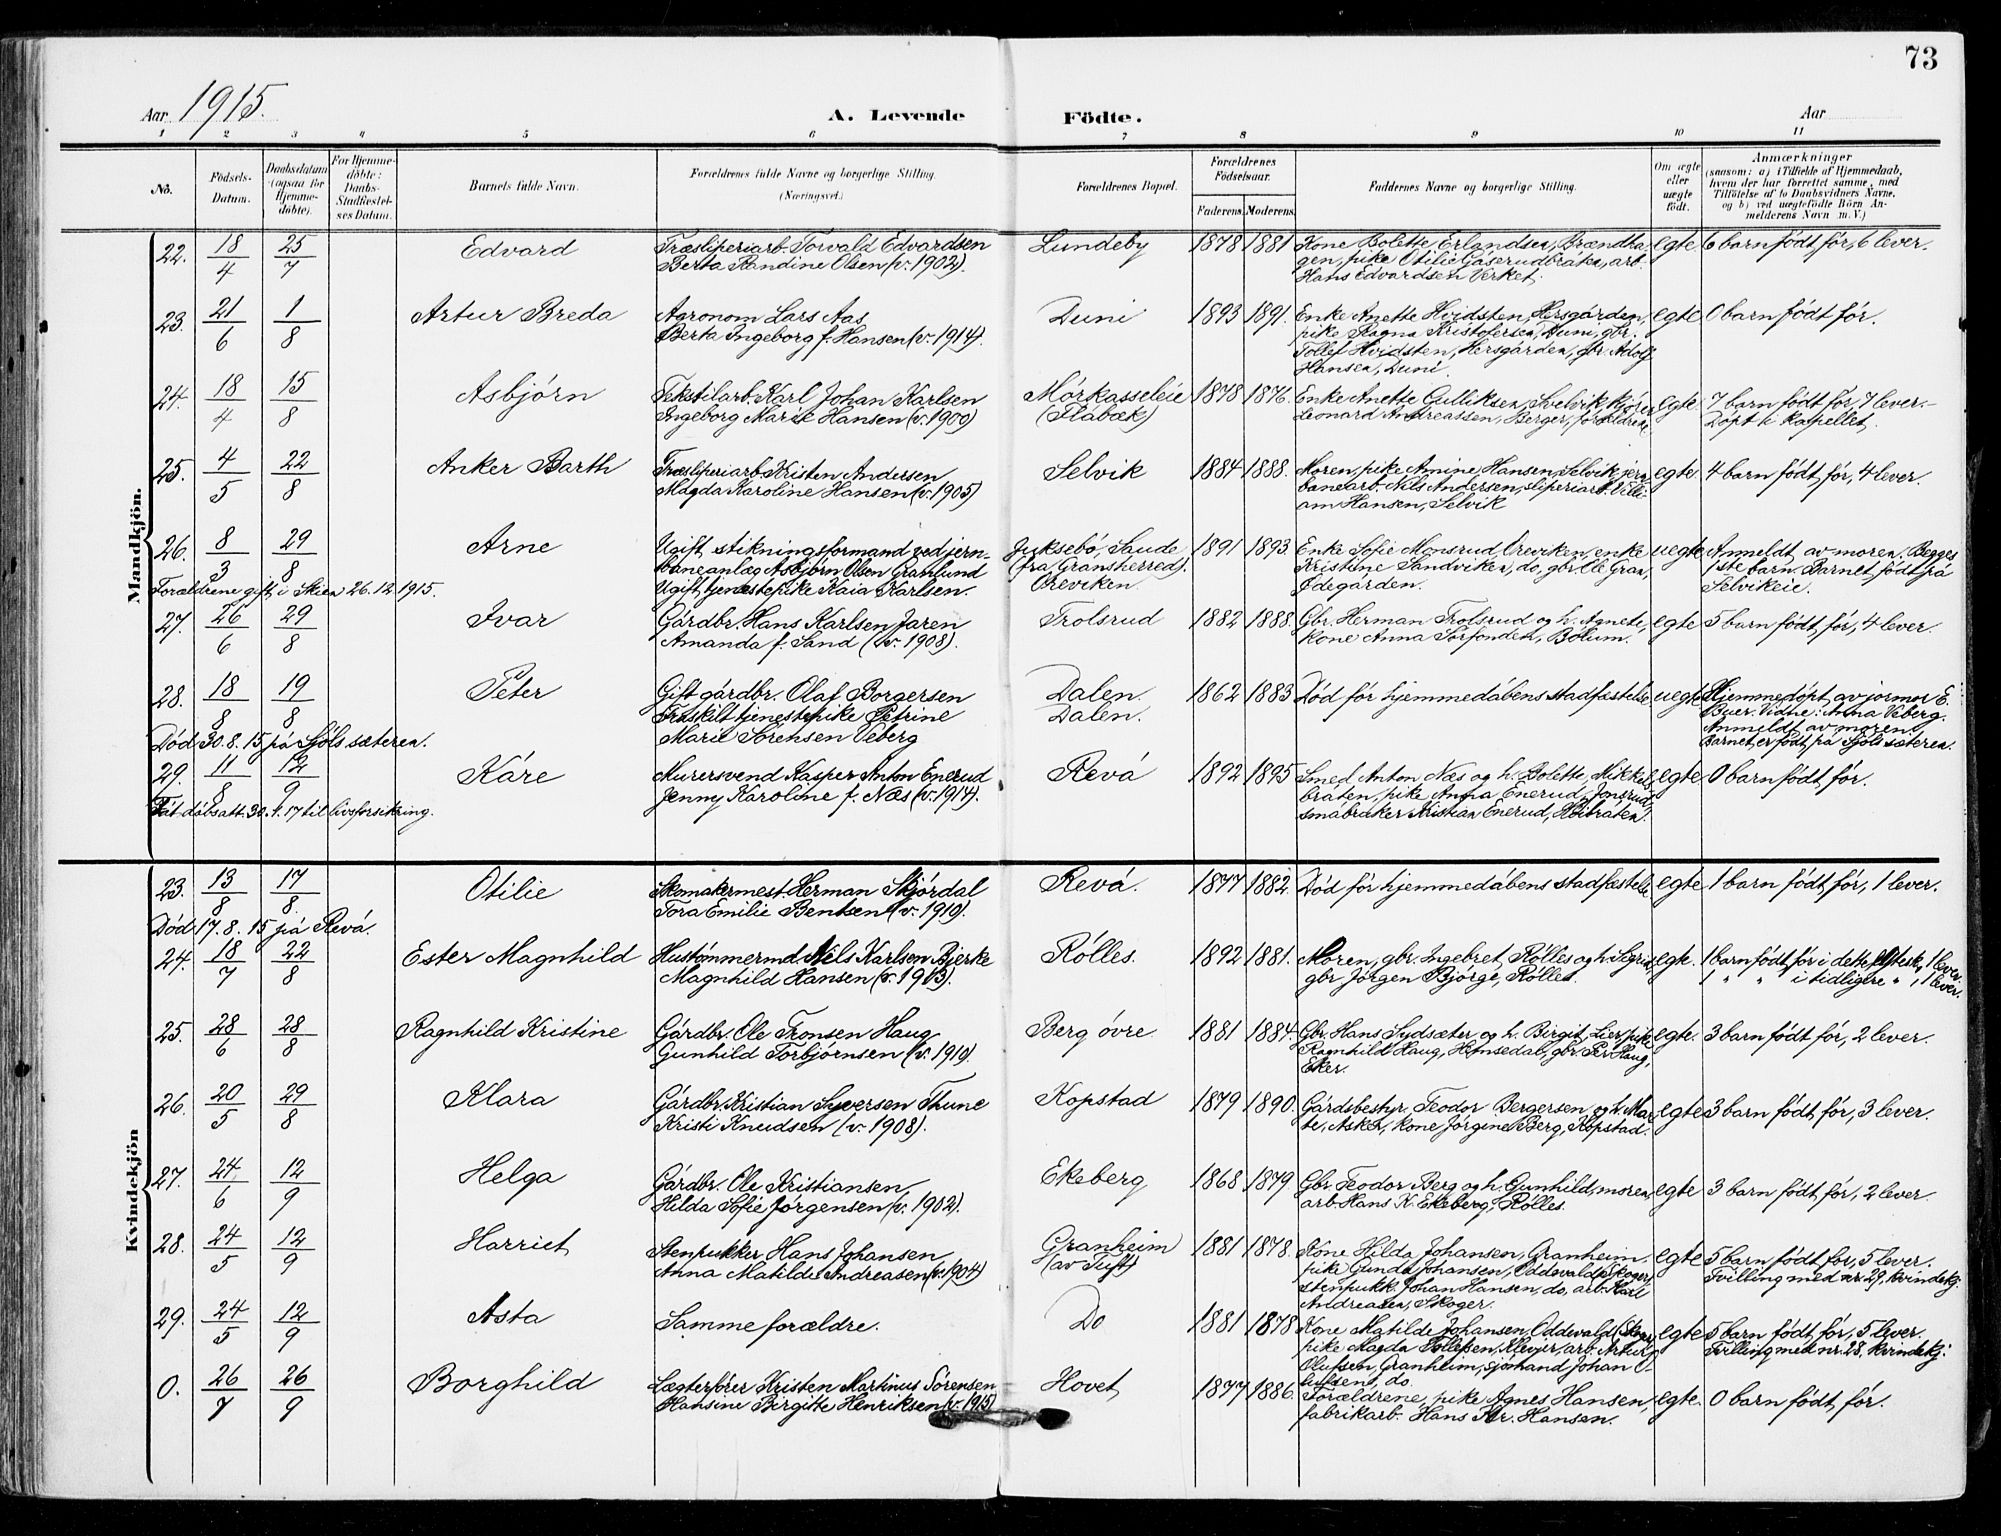 73
Aar 1915.
A. Levende Födte.
Aar
1 2 3 4 5 6 7 8 9 10 11
No. Födsels-Datum. Daabsdatum (ogsaa for Hjemmedöbte). For Hjemmedöbte: Daabs-Stadfæstelses Datum. Barnets fulde Navn. Forældrenes fulde Navne og borgerlige Stilling. (Næringsvei.) Forældrenes Bopæl. Forældrenes Födselsaar. Faderens. Moderens. Faddernes Navne og borgerlige Stilling. Om ægte eller uægte födt. Anmærkninger (saasom: a) i Tilfælde af Hjemmedaab, hvem der har forrettet samme, med Tilföielse af to Daabsvidners Navne, og b) ved uægtefödte Börn Anmelderens Navn m. V.)
Mandkjön.
22. 18/4 25/7 Edvard Træsliperiarb. Torvald Edvardsen Lundeby 1878 1881. Kone Bolette Erlandsen, Brændha- egte 6 barn födt för, 6 lever.
Berta Randine Olsen (v. 1902). gen, pike Otilie Gåserudbråten, arb.
Hans Edvardsen Verket.
23. 21/6 1/8 Artur Breda Agronom Lars Aas Duni 1893 1891. Enke Anette Hvidsten, Hersgården, egte 0 barn födt för.
Berta Ingeborg f. Hansen (v. 1914). pike Ragna Kristofersen, Duni, gbr.
Tollef Hvidsten, Hersgården, gbr. Adolf
Hansen, Duni.
24. 18/4 15/8 Asbjørn Tekstilarb. Karl Johan Karlsen Mörkasseleie 1878 1876. Enke Anette Gulliksen, Svelvik, egte. 7 barn födt för, 7 lever.
Ingeborg Marie Hansen (v. 1900) Leonard Andreassen, Berger, forældrene. Döpt i kapellet.
25. 4/5 22/8 Anker Barth Træsliperiarb. Kristen Andersen Selvik 1884 1888. Moren, pike Amine Hansen, Selvik, jern- egte. 4 barn födt för, 4 lever.
Magda Karoline Hansen (v. 1905) banearb. Nils Andersen, sliperiarb. Villi-
am Hansen, Selvik
26. 8/3 29/8 Arne Ugift stikningsformand ved jern- Juksebö, Saude 1891 1893. Enke Sofie Monsrud Oreviken, enke uegte Anmeldt av moren. Begges
baneanlæg Asbjörn Olsen Granlund (fra Gransherred). Kristine Sandviken, do, gbr. Ole Gran, 1ste barn. Barnet födt på
Forældrene gift i Skien 26.12.1915. Ugift tjenestepike Kaia Karlsen. Oreviken. Ödegården. Selvikeie.
27. 26/6 29/8 Ivar Gårdbr. Hans Karlsen Jaren Trolsrud 1882 1888. Gbr. Herman Trolsrud og h. Agnete, egte 5 barn födt för, 4 lever.
Amanda f. Sand (v. 1908). kone Anna Sörfonden, Bolum.
28. 18/8 19/8 Peter Gift gårdbr. Olaf Borgersen Dalen. 1862 1883 Död för hjemmedåbens stadfæstelse uegte Hjemmedöpt av jormor E.
Fraskilt tjenestepike Petrine Dalen. Buer. Vidne: Anna Veberg.
Marie Sörensen Veberg Anmeldt av moren.
Död 30.8.15 på Sjöls sæteren. Barnet er födt på Sjöls sæteren.
29. 11/8 12/9 Kåre Murersvend Kasper Anton Enerud Revå 1892 1895 Smed Anton Næs og h. Bolette, Mikkels- egte 0 barn födt för.
Jenny Karoline f. Næs (v. 1914). bråten, pike Anna Enerud, Jonsrud,
Fåt dåbsatt. 30.1.17 til livsforsikring. småbruker Kristian Enerud, Höibråten.
Kvindekjön
23. 13/8 17/8 Otilie Skomakermest. Herman Skjördal Revå. 1877 1882. Död för hjemmedåbens stadfæstelse egte 1 barn födt för, 1 lever.
Tora Emilie Bentsen (v. 1910).
Död 17.8.15 på Revå.
24. 18/7 22/8 Ester Magnhild Hustömmermd. Nils Karlsen Bjerke Rölles. 1892 1881. Moren, gbr. Ingebret Rölles og h. Sigrid, egte. 1 barn födt för i dette egtesk., 1 lever.
Magnhild Hansen (v. 1913). gbr. Jörgen Björge, Rölles. 1 " " i tidligere " , 1 lever.
25. 28/6 28/8 Ragnhild Kristine Gårdbr. Ole Tronsen Haug Berg övre. 1881 1884. Gbr. Hans Sydsæter og h. Birgit, Lier, pike egte. 3 barn födt för, 2 lever.
Gunhild Torbjörnsen (v. 1910). Ragnhild Haug, Hemsedal, gbr. Per Haug,
Eker.
26. 20/5 29/8 Klara Gårdbr. Kristian Syversen Thune Kopstad 1879 1890. Gårdsbestyr. Teodor Bergersen og h. Mar- egte 3 barn födt för, 3 lever.
Kristi Knudsen (v. 1908). te, Asker, kone Jörgine Berg, Kopstad.
27. 24/6 12/9 Helga Gårdbr. Ole Kristiansen Ekeberg 1868 1879. Gbr. Teodor Berg og h. Gunhild, moren, egte 3 barn födt för, 2 lever.
Hilda Sofie Jörgensen (v. 1902). arb. Hans K. Ekeberg, Rölles.
28. 24/5 12/9 Harriet Stenpukker Hans Johansen Granheim 1881 1878. Kone Hilda Johansen, Granheim. egte 5 barn födt för, 5 lever.
Anna Matilde Andreasen (v. 1904) (av Tuft) pike Gunda Johansen, Oddevald (Skoger) Tvilling med nr. 29, kvindekj.
stenpukk. Johan Hansen, do, arb. Karl
Andreasen, Skoger.
29. 24/5 12/9 Asta Samme forældre. Do 1881 1878 Kone Matilde Johansen, Oddevald (Skoger) egte 5 barn födt för, 5 lever.
pike Magda Tollefsen, Klever, arb. Artur Tvilling med nr. 28, kvindekj.
Olufsen, Granheim, sjömand Johan O-
lufsen, do.
0. 26/7 26/9 Borghild Lægterförer Kristen Martinus Sörensen Hovet 1877 1886. Forældrene, pike Agnes Hansen, egte. 0 barn födt för.
Hansine Birgitte Henriksen (v. 1915) fabrikarb. Hans Kr. Hansen.